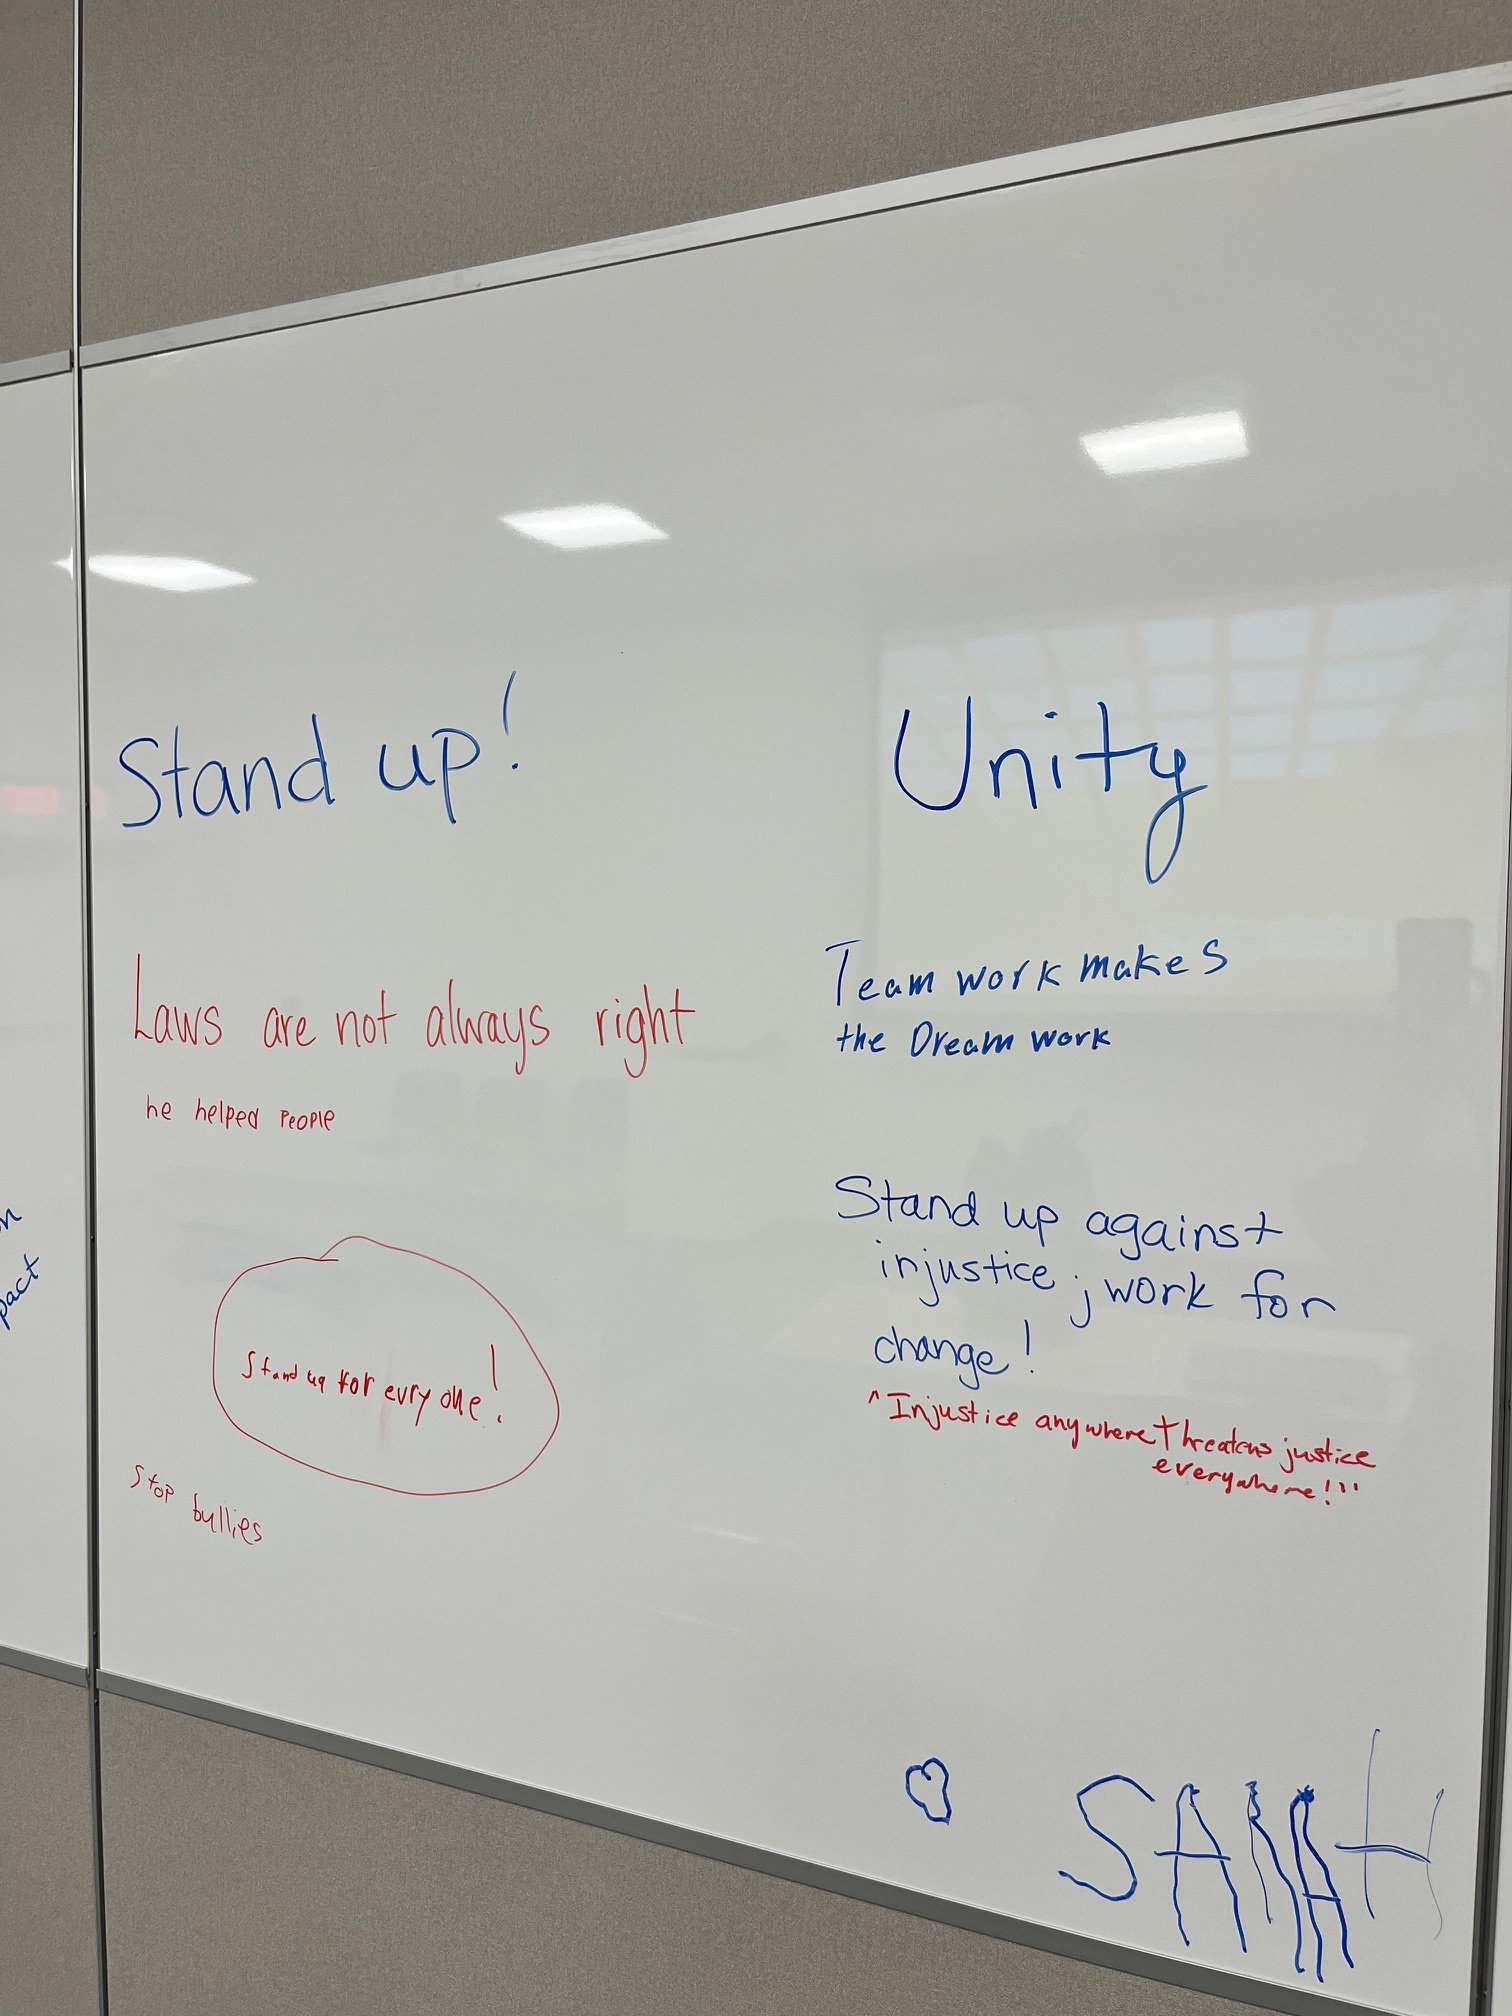 Stand up!
Laws are not always right
he helped people
Stand up for evry one!
Stop bullies
Unity
Team work makes
the Dream work
Stand up against
injustice; work for
change!
"Injustice anywhere threatens justice
everywhere!"
SARAH
pact